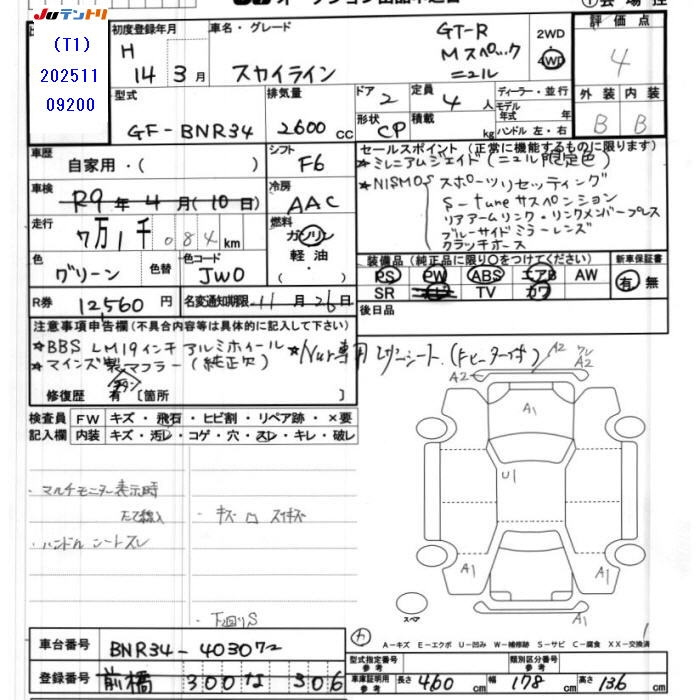 JUテントリ
(T1)
202511
09200
初度登録年月
H
14年3月
車名・グレード
スカイライン
GT-R
Mスペック
ニュル
2WD
4WD
評価点
4
外装 内装
B B
型式
GF-BNR34
排気量
2600 cc
ドア 2
形状 CP
定員 4 人
積載 kg
ディーラー・並行
モデル年式 年
ハンドル 左・右
車歴
自家用・( )
シフト
F6
車検
R9年4月(10日)
冷房
AAC
走行
7万1千084km
燃料
ガソリン
軽油
色
グリーン
色替
色コード
JW0
R券
12,560円
名変通知期限 11月26日
セールスポイント (正常に機能するものに限ります)
★ミレニアムジェイド(ニュル限定色)
★NISMO S スポーツリセッティング
S-tuneサスペンション
リアアームリンク・リンクメンバーブレス
ブルーサイドミラーレンズ
クラッチホース
装備品(純正品に限り○をつけてください)
PS PW ABS エアB AW
SR TV カワ
新車保証書
有 無
後日品
注意事項申告欄(不具合内容等は具体的に記入して下さい)
★BBS LM19インチアルミホイール
★マインズ製マフラー(純正欠)
チタン
★Nur専用レザーシート.(ヒーター付)
修復歴 有 [箇所 ]
検査員記入欄
FW キズ・飛石・ヒビ割・リペア跡・×要
内装 キズ・汚レ・コゲ・穴・スレ・キレ・破レ
・マルチモニター表示時
たて線入
・ハンドル シートスレ
・キズ ロ スリキズ
・下廻りS
A2
A2
A2
A1
U1
A1
A1
A1
スペア
A-キズ E-エクボ U-凹み W-補修跡 S-サビ C-腐食 XX-交換済
車台番号
BNR34-403072
登録番号
前橋 300 な 306
型式指定番号 参考
類別区分番号 参考
車庫証明用参考
長さ 460 cm 幅 178 cm 高さ 136 cm